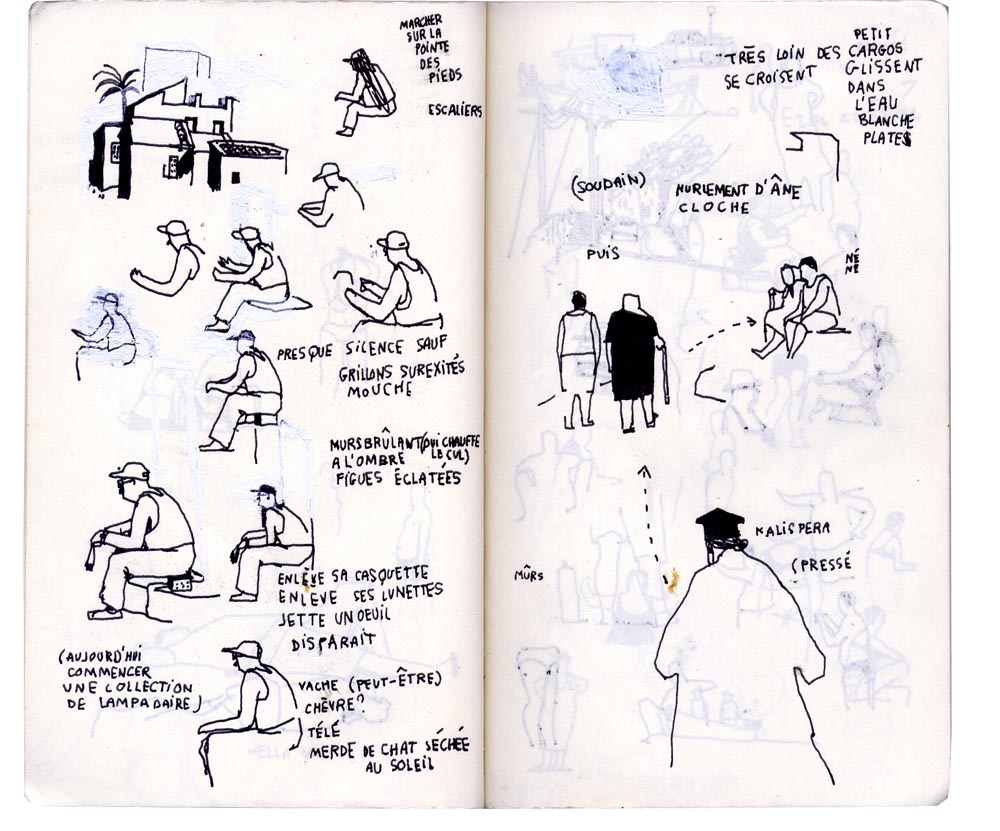 MARCHER
SUR LA
POINTE
DES
PIEDS
ESCALIERS
PRESQUE SILENCE SAUF
GRILLONS SUREXITÉS
MOUCHE
MURS BRÛLANT (QUI CHAUFFE
LE CUL)
A L'OMBRE
FIGUES ÉCLATÉES
ENLÈVE SA CASQUETTE
ENLEVE SES LUNETTES
JETTE UN OEUIL
DISPARAIT
(AUJOURD'HUI
COMMENCER
UNE COLLECTION
DE LAMPADAIRE)
VACHE (PEUT-ÊTRE)
CHÈVRE?
TÉLÉ
MERDE DE CHAT SÉCHÉE
AU SOLEIL
TRĒS LOIN DES PETIT
CARGOS
SE CROISENT GLISSENT
DANS
L'EAU
BLANCHE
PLATES
(SOUDAIN)
HURLEMENT D'ÂNE
CLOCHE
PUIS
NÉ
NÉ
KALISPERA
(PRESSÉ
MÛRS